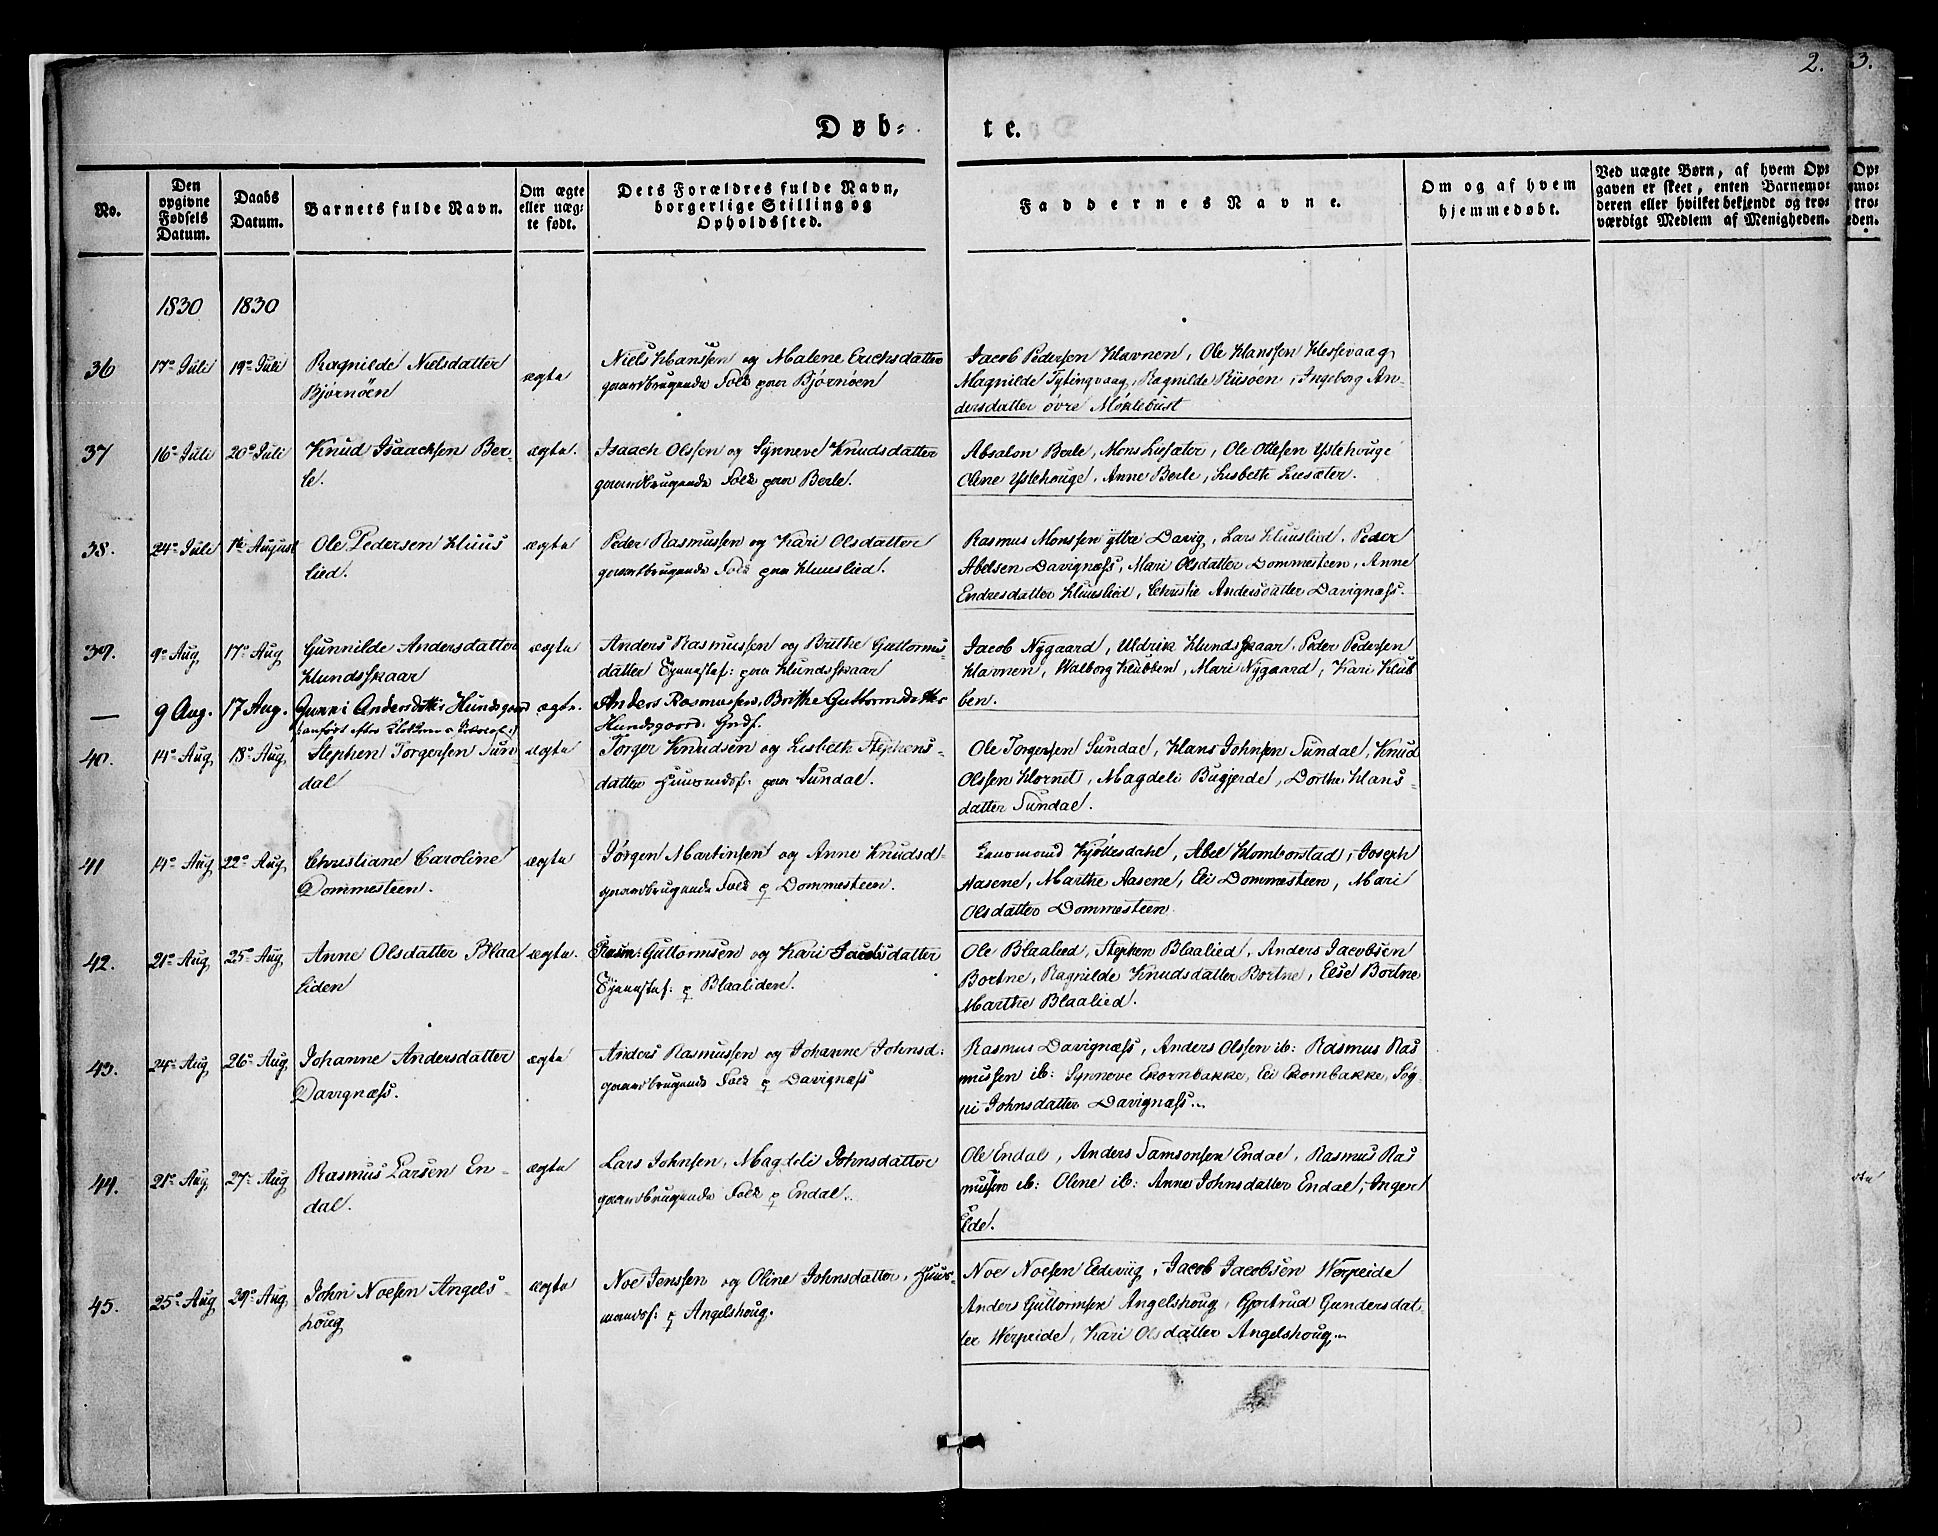 2. 3.
Døb- te.
No.
Den opgivne Fødsels Datum.
Daabs Datum.
Barnets fulde Navn.
Om ægte eller uæg- te født.
Dets Forældres fulde Navn, borgerlige Stilling og Opholdssted.
Faddernes Navne.
Om og af hvem hjemmedøbt.
Ved uægte Børn, af hvem Op- gaven er skeet, enten Barnemo- deren eller hvilket bekjendt og tro- værdigt Medlem af Menigheden.
1830 1830
36 17de Juli 19de Juli Ragnilde Nielsdatter
Bjørnøen
ægte
Niels Hanssen og Malene Erichsdatter
gaardbrugende Folk paa Bjørnøen
Jacob Pedersen Havnen, Ole Hanssen Hessevaag,
Magnilde Tytingvaag, Ragnilde Riisøen, Ingeborg An-
dersdatter øvre Møklebust
37 16de Juli 20de Juli Knud Isaachsen Ber-
le.
ægte.
Isaach Olssen og Synneve Knudsdatter
gaardbrugende Folk paa Berle.
Absalon Berle, Mons Liesæter, Ole Ottesen Ystehouge
Oline Ystehouge, Anne Berle, Lisbeth Liesæter.
38. 24de Juli 1ste August Ole Pedersen Huus
lied.
ægte
Peder Rasmussen og Kari Olsdatter
gaardbrugende Folk paa Huuslied.
Rasmus Monssen ytre Davig, Lars Huuslied, Peder
Abelsen Davignæss, Mari Olsdatter Dommesteen, Anne
Endresdatter Huuslied, Christie Andersdatter Davignæss.
39. 9de Aug 17de Aug Gunnilde Andersdatter
Hundsskaar
ægte
Anders Rasmussen og Brithe Guttorms-
datter Tjenestef: paa Hundsskaar
Jacob Nygaard, Uldrik Hundsskaar, Peder Pedersen
Havnen, Walborg Hubben, Mari Nygaard, Kari Hub
ben.
— 9 Aug. 17 Aug. Gunni Andersdatter Hundsgaard
(anført efter Klokkerens
ægte.
Anders Rasmussen, Brithe Guttormsdatter
Hundsgaard: Grdf.
40. 14de Aug 18de Aug Stephen Torgersen Sun
dal
ægte
Torger Knudsen og Lisbeth Stephens-
datter Huusmandsf: paa Sundal.
Ole Torgersen Sundal, Hans Johnsen Sundal, Knud
Olssen Hornet, Magdeli Bugjerde, Dorthe Hans-
datter Sundal.
41 14de Aug 22de Aug Christiane Caroline
Dommesteen.
ægte
Jørgen Martinsen og Anne Knudsd-
gaardbrugende Folk p Dommesteen.
Kjøllesdahl, Abel Homborstad, Joseph
Aasene, Marthe Aasene, Eli Dommesteen, Mari
Olsdatter Dommesteen
42. 21de Aug 25de Aug Anne Olsdatter Blaa
liden
ægte.
Rasm: Guttormsen og Kari Jacobsdatter
Tjenestef: p Blaaliden.
Ole Blaalied, Stephen Blaalied, Anders Jacobsen
Bortne, Ragnilde Knudsdatter Bortne, Else Bortne
Marthe Blaalied.
43. 24de Aug 26de Aug Johanne Andersdatter
Davignæss.
ægte
Anders Rasmussen og Johanne Johnsd:
gaardbrugende Folk p Davignæss
Rasmus Davignæss, Anders Olssen ib: Rasmus Ras
mussen ib: Synneve Ekornbakke, Eli Ekornbakke, Søg-
ni Johnsdatter Davignæss.
44. 21de Aug 27de Aug Rasmus Larsen En-
dal.
ægte
Lars Johnsen, Magdeli Johnsdatter
gaardbrugende Folk p Endal.
Ole Endal, Anders Samsonsen Endal, Rasmus Ras
mussen ib: Oline ib: Anne Johnsdatter Endal, Inger
Elde.
45. 25de Aug 29de Aug John Noesen Angels-
houg
ægte
Noe Jenssen og Oline Johnsdatter, Huus-
mandsf: p Angelshoug.
Noe Noesen Eldeviig, Jacob Jacobsen Werpeide
Anders Guttormsen Angelshoug, Gjertrud Gundersdat-
ter Werpeide, Kari Olsdatter Angelshoug.